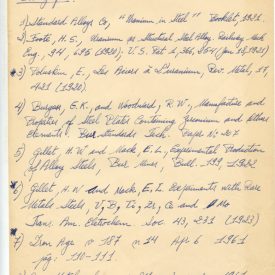 1) Standard Alloys Co, "Uranium in Steel" Booklet, 1921.
2) Foote, H.S., Uranium as Structural Steel Alloy. Railway Mech
Eng., 94, 695 (1920); U.S. Pat 1,366,254 (Jan 18, 1921)
3) Poluskin, E., Les Aciers à l'uranium, Rev. Metal, 17,
421 (1920).
4) Burgess, G.K. and Woodward, R.W., Manufacture and
Properties of Steel Plates Containing Zirconium and other
Elements. Bur. Standards Tech. Paper No 207
5) Gillett, H.W and Mack, E.L, Experimental Production
of Alloy Steels, Bur. Mines, Bull. 199, 1922
6) Gillett, H.W and Mack, E.L Experiments with Rare
Metals Steels U, B, Ti, Zr, Ce and Mo
Trans. Am. Eletrochem Soc. 43, 231 (1923)
7) Iron Age v 187 n 14 Apr 6 1961
pág. 110-111.